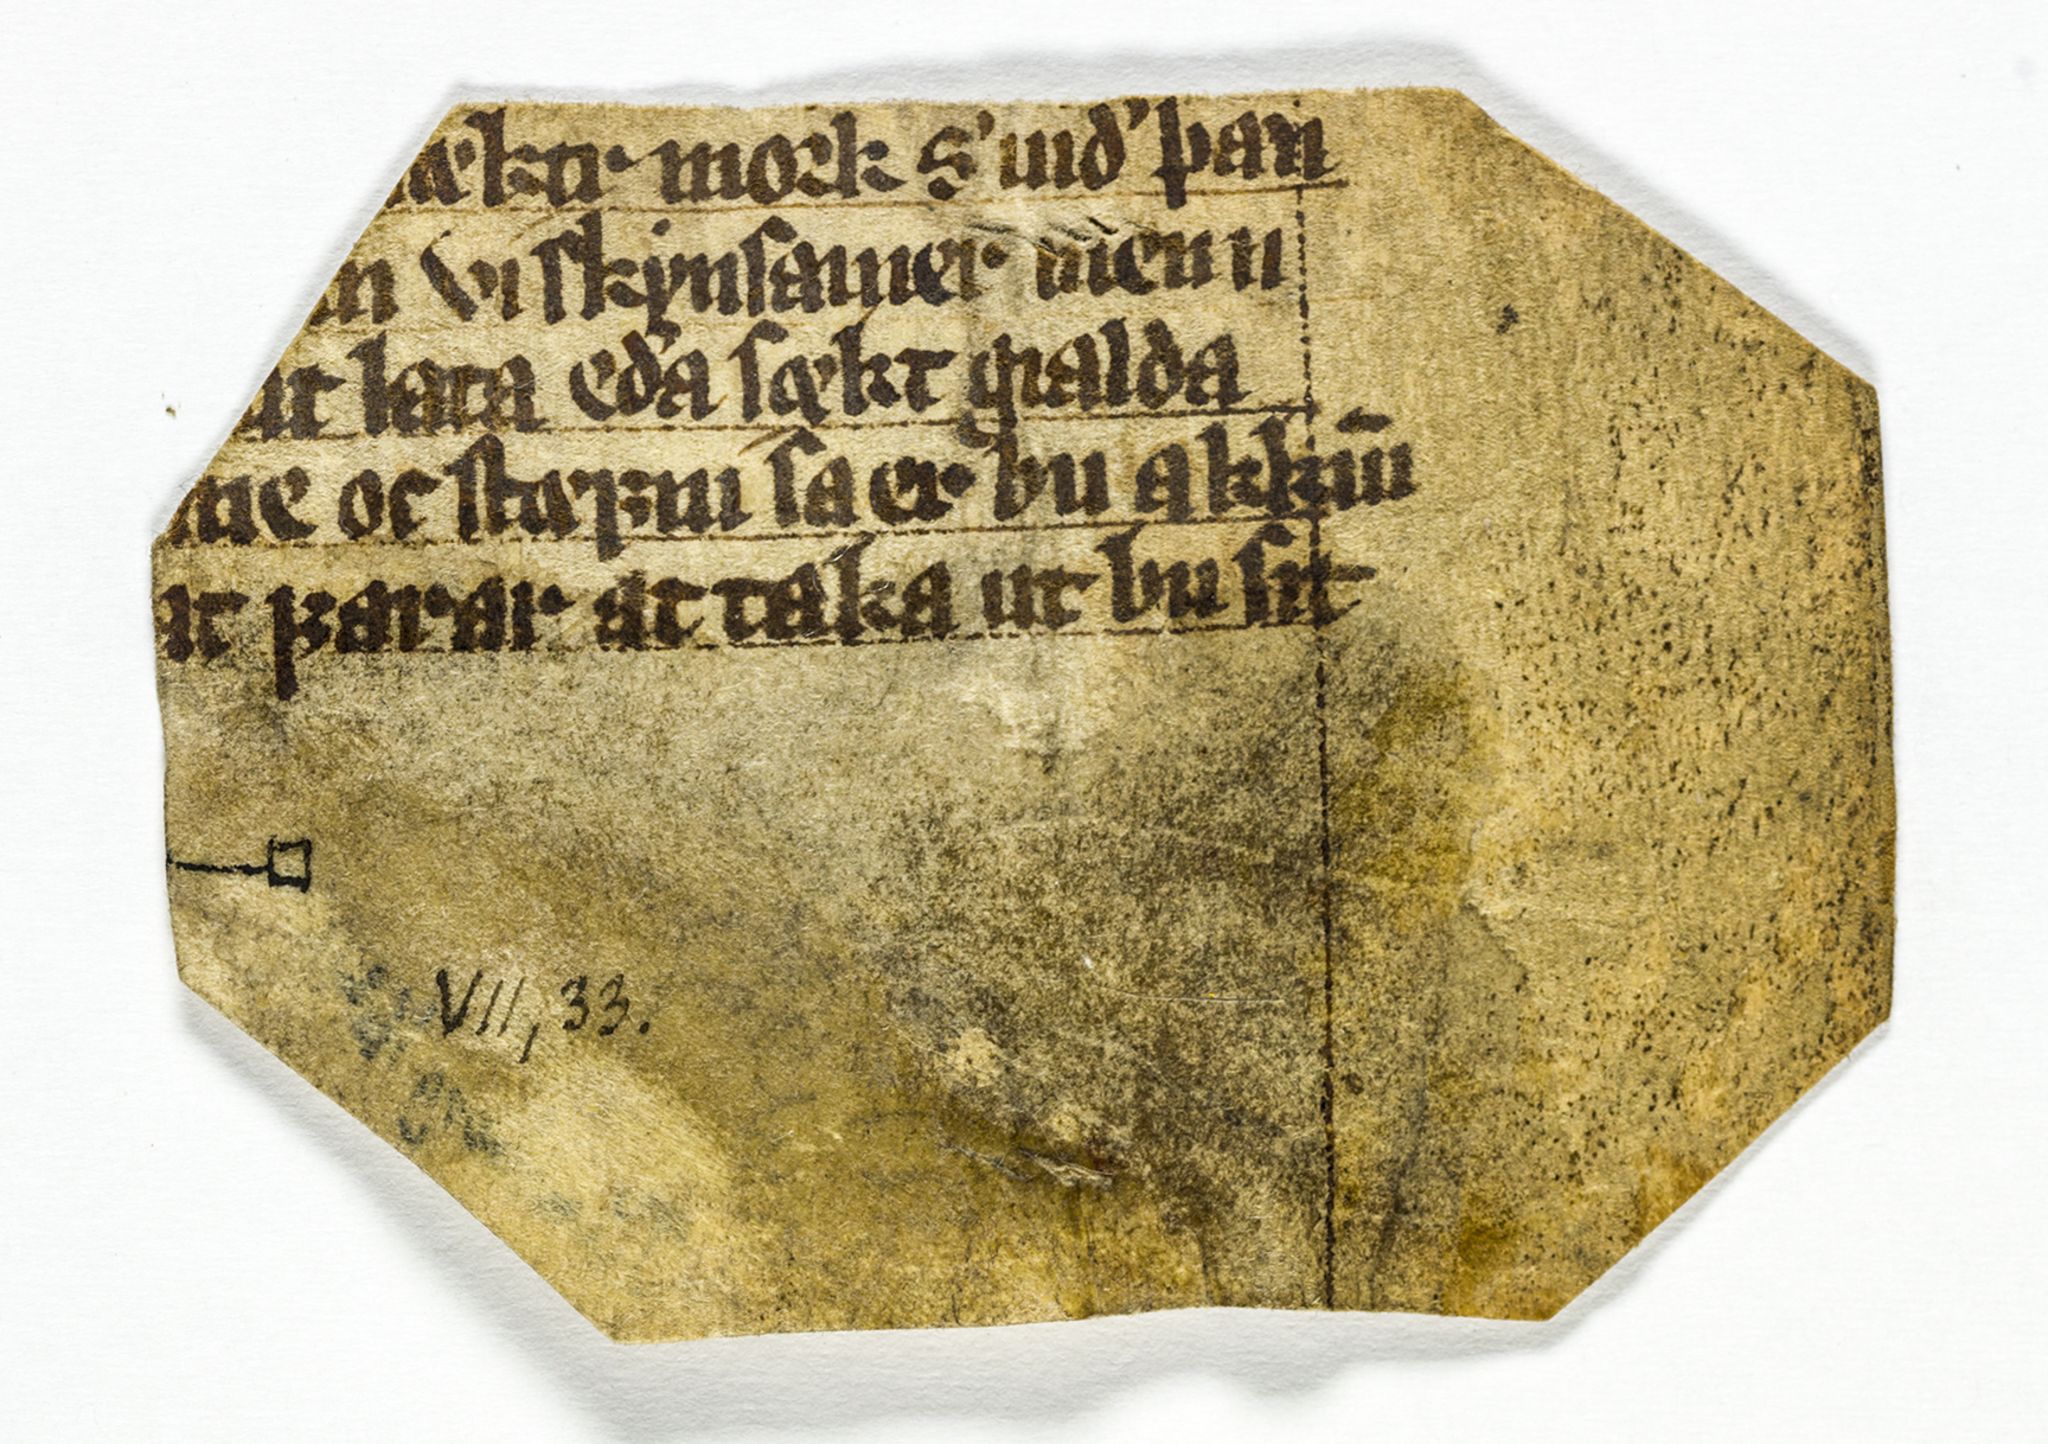 ækir mork s' uið' þan̄
n vi skynsamer menn
ut lata eða sækt gialda
ne oc stæfni sa er bu a kkiū
at farar at taka ut bu sit
VII, 33.